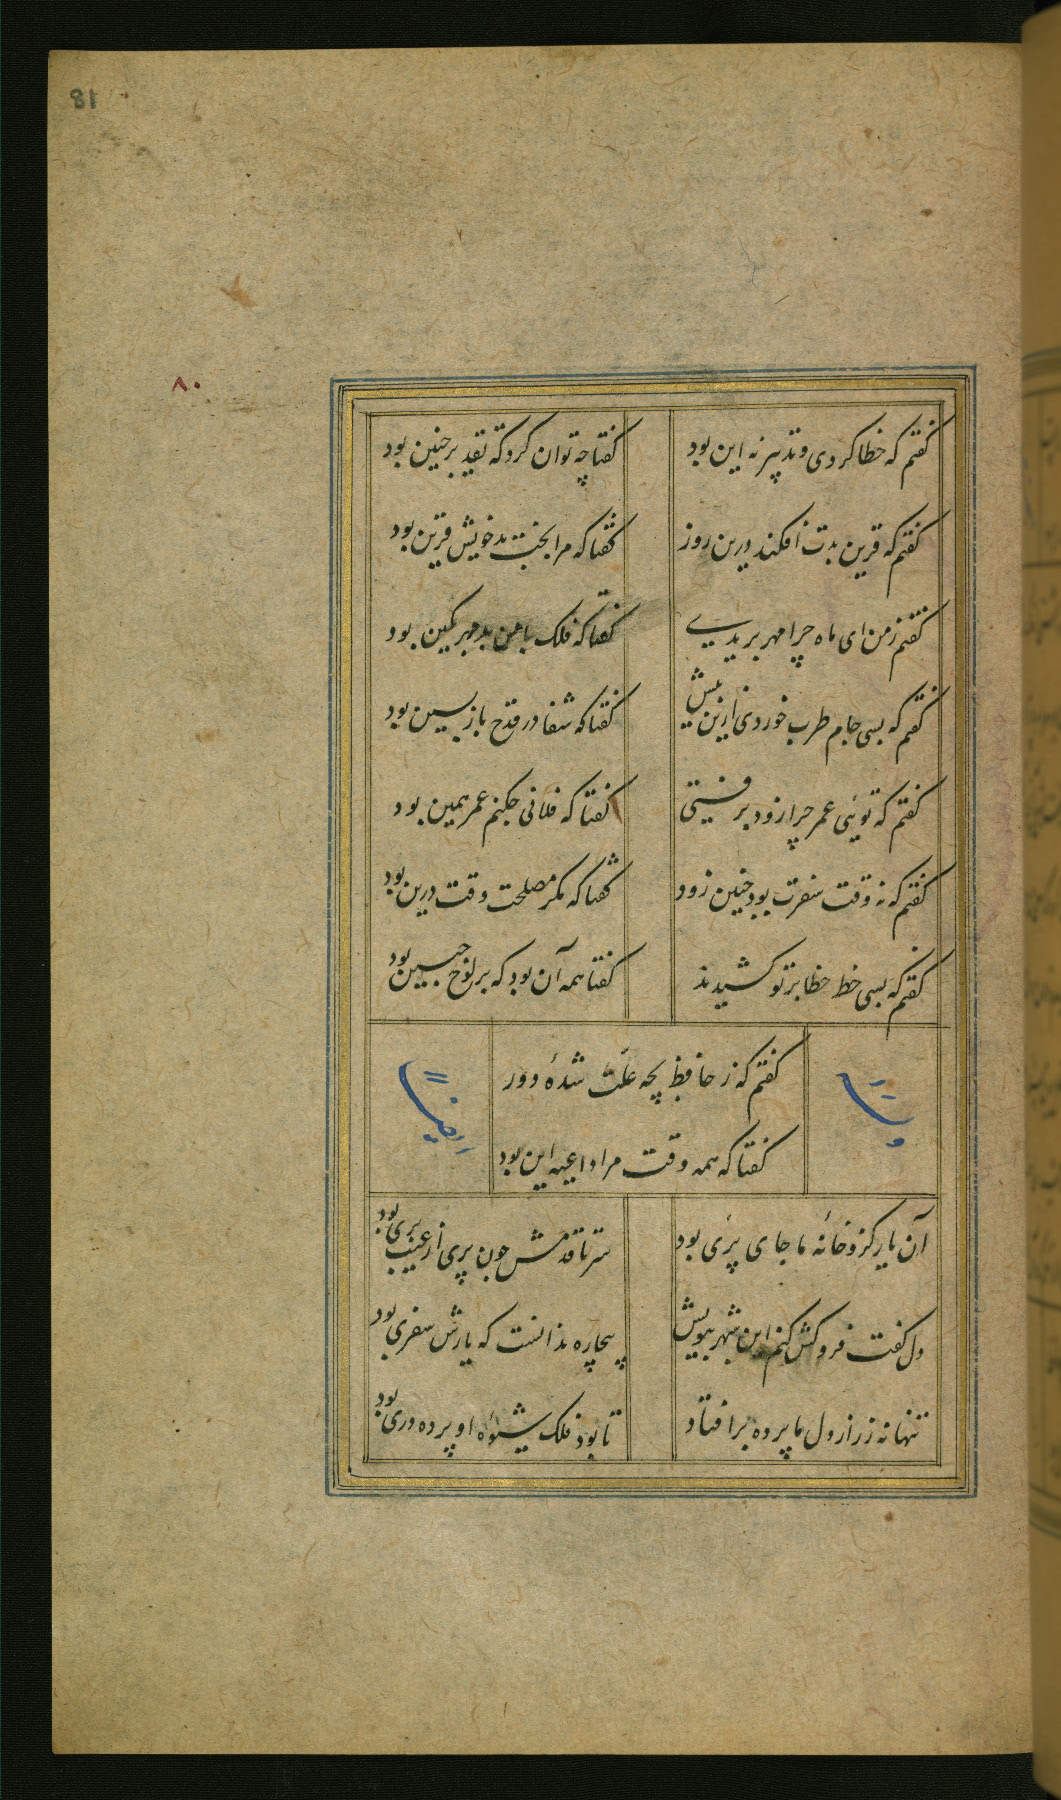 81
۸۰
گفتم که خطا کردی و تدبیر نه این بود
گفتا چه توان کرد که تقدیر چنین بود
گفتم که قرین بدت افکند درین روز
گفتا که مرا بخت بد خویش قرین بود
گفتم ز من ای ماه چرا مهر بریدی
گفتا که فلک با من بد مهر بکین بود
گفتم که بسی جام طرب خوردی ازین پیش
گفتا که شفا در قدح بازپسین بود
گفتم که توئی عمر چرا زود برفتی
گفتا که فلانی چکنم عمر همین بود
گفتم که نه وقت سفرت بود چنین زود
گفتا که مگر مصلحت وقت درین بود
گفتم که بسی خط خطا بر تو کشیدند
گفتا همه آن بود که بر لوح جبین بود
گفتم که ز حافظ بچه علت شدهٔ دور
گفتا که همه وقت مرا داعیه این بود
وله
ایضا
آن یار کزو خانهٔ ما جای پری بود
سر تا قدمش چون پری از عیب بری بود
دل گفت فروکش کنم این شهر ببویش
بیچاره ندانست که یارش سفری بود
تنها نه ز راز دل ما پرده برافتاد
تا بود فلک شیوهٔ او پرده دری بود